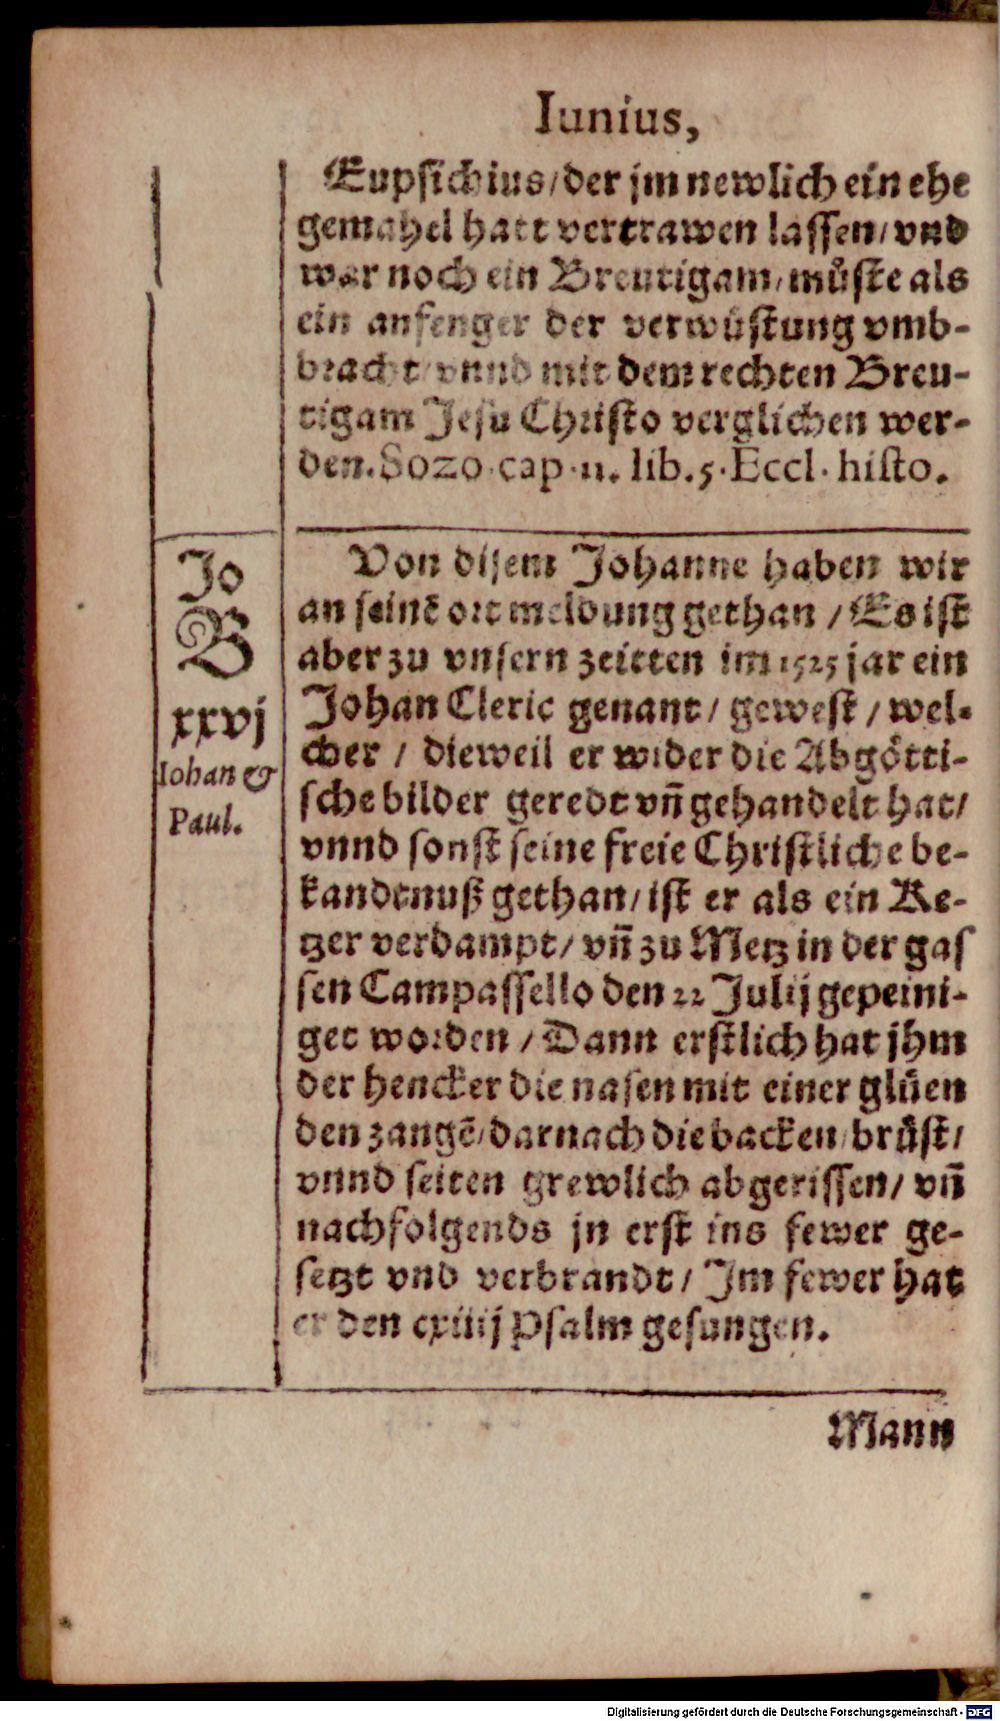 Iunius,
Eupſichius/der jm newlich ein ehe
gemahel hatt vertrawen laſſen/vnd
war noch ein Breutigam/můſte als
ein anfenger der verwüſtung vmb-
bracht/vnnd mit dem rechten Breu-
tigam Jeſu Chriſto verglichen wer-
den. Sozo. cap. 11. lib. 5. Eccl. hiſto.
Jo
B
xxvj
Iohan &
Paul.
Von diſem Johanne haben wir
an ſeinē ort meldung gethan / Es iſt
aber zu vnſern zeitten im 1525 jar ein
Johan Cleric genant / geweſt / wel-
cher / dieweil er wider die Abgötti-
ſche bilder geredt vñ gehandelt hat/
vnnd ſonſt ſeine freie Chriſtliche be-
kandtnuß gethan/iſt er als ein Ke-
tzer verdampt/ vñ zu Metz in der gaſ
ſen Campaſſello den 22 Julij gepeini-
get worden / Dann erſtlich hat jhm
der hencker die naſen mit einer glüen
den zangē/darnach die backen/brüſt/
vnnd ſeiten grewlich abgeriſſen/ vñ
nachfolgends jn erſt ins fewer ge-
ſetzt vnd verbrandt / Im fewer hat
er den cxiiij Pſalm geſungen.
Mann
Digitalisierung gefördert durch die Deutsche Forschungsgemeinschaft - DFG